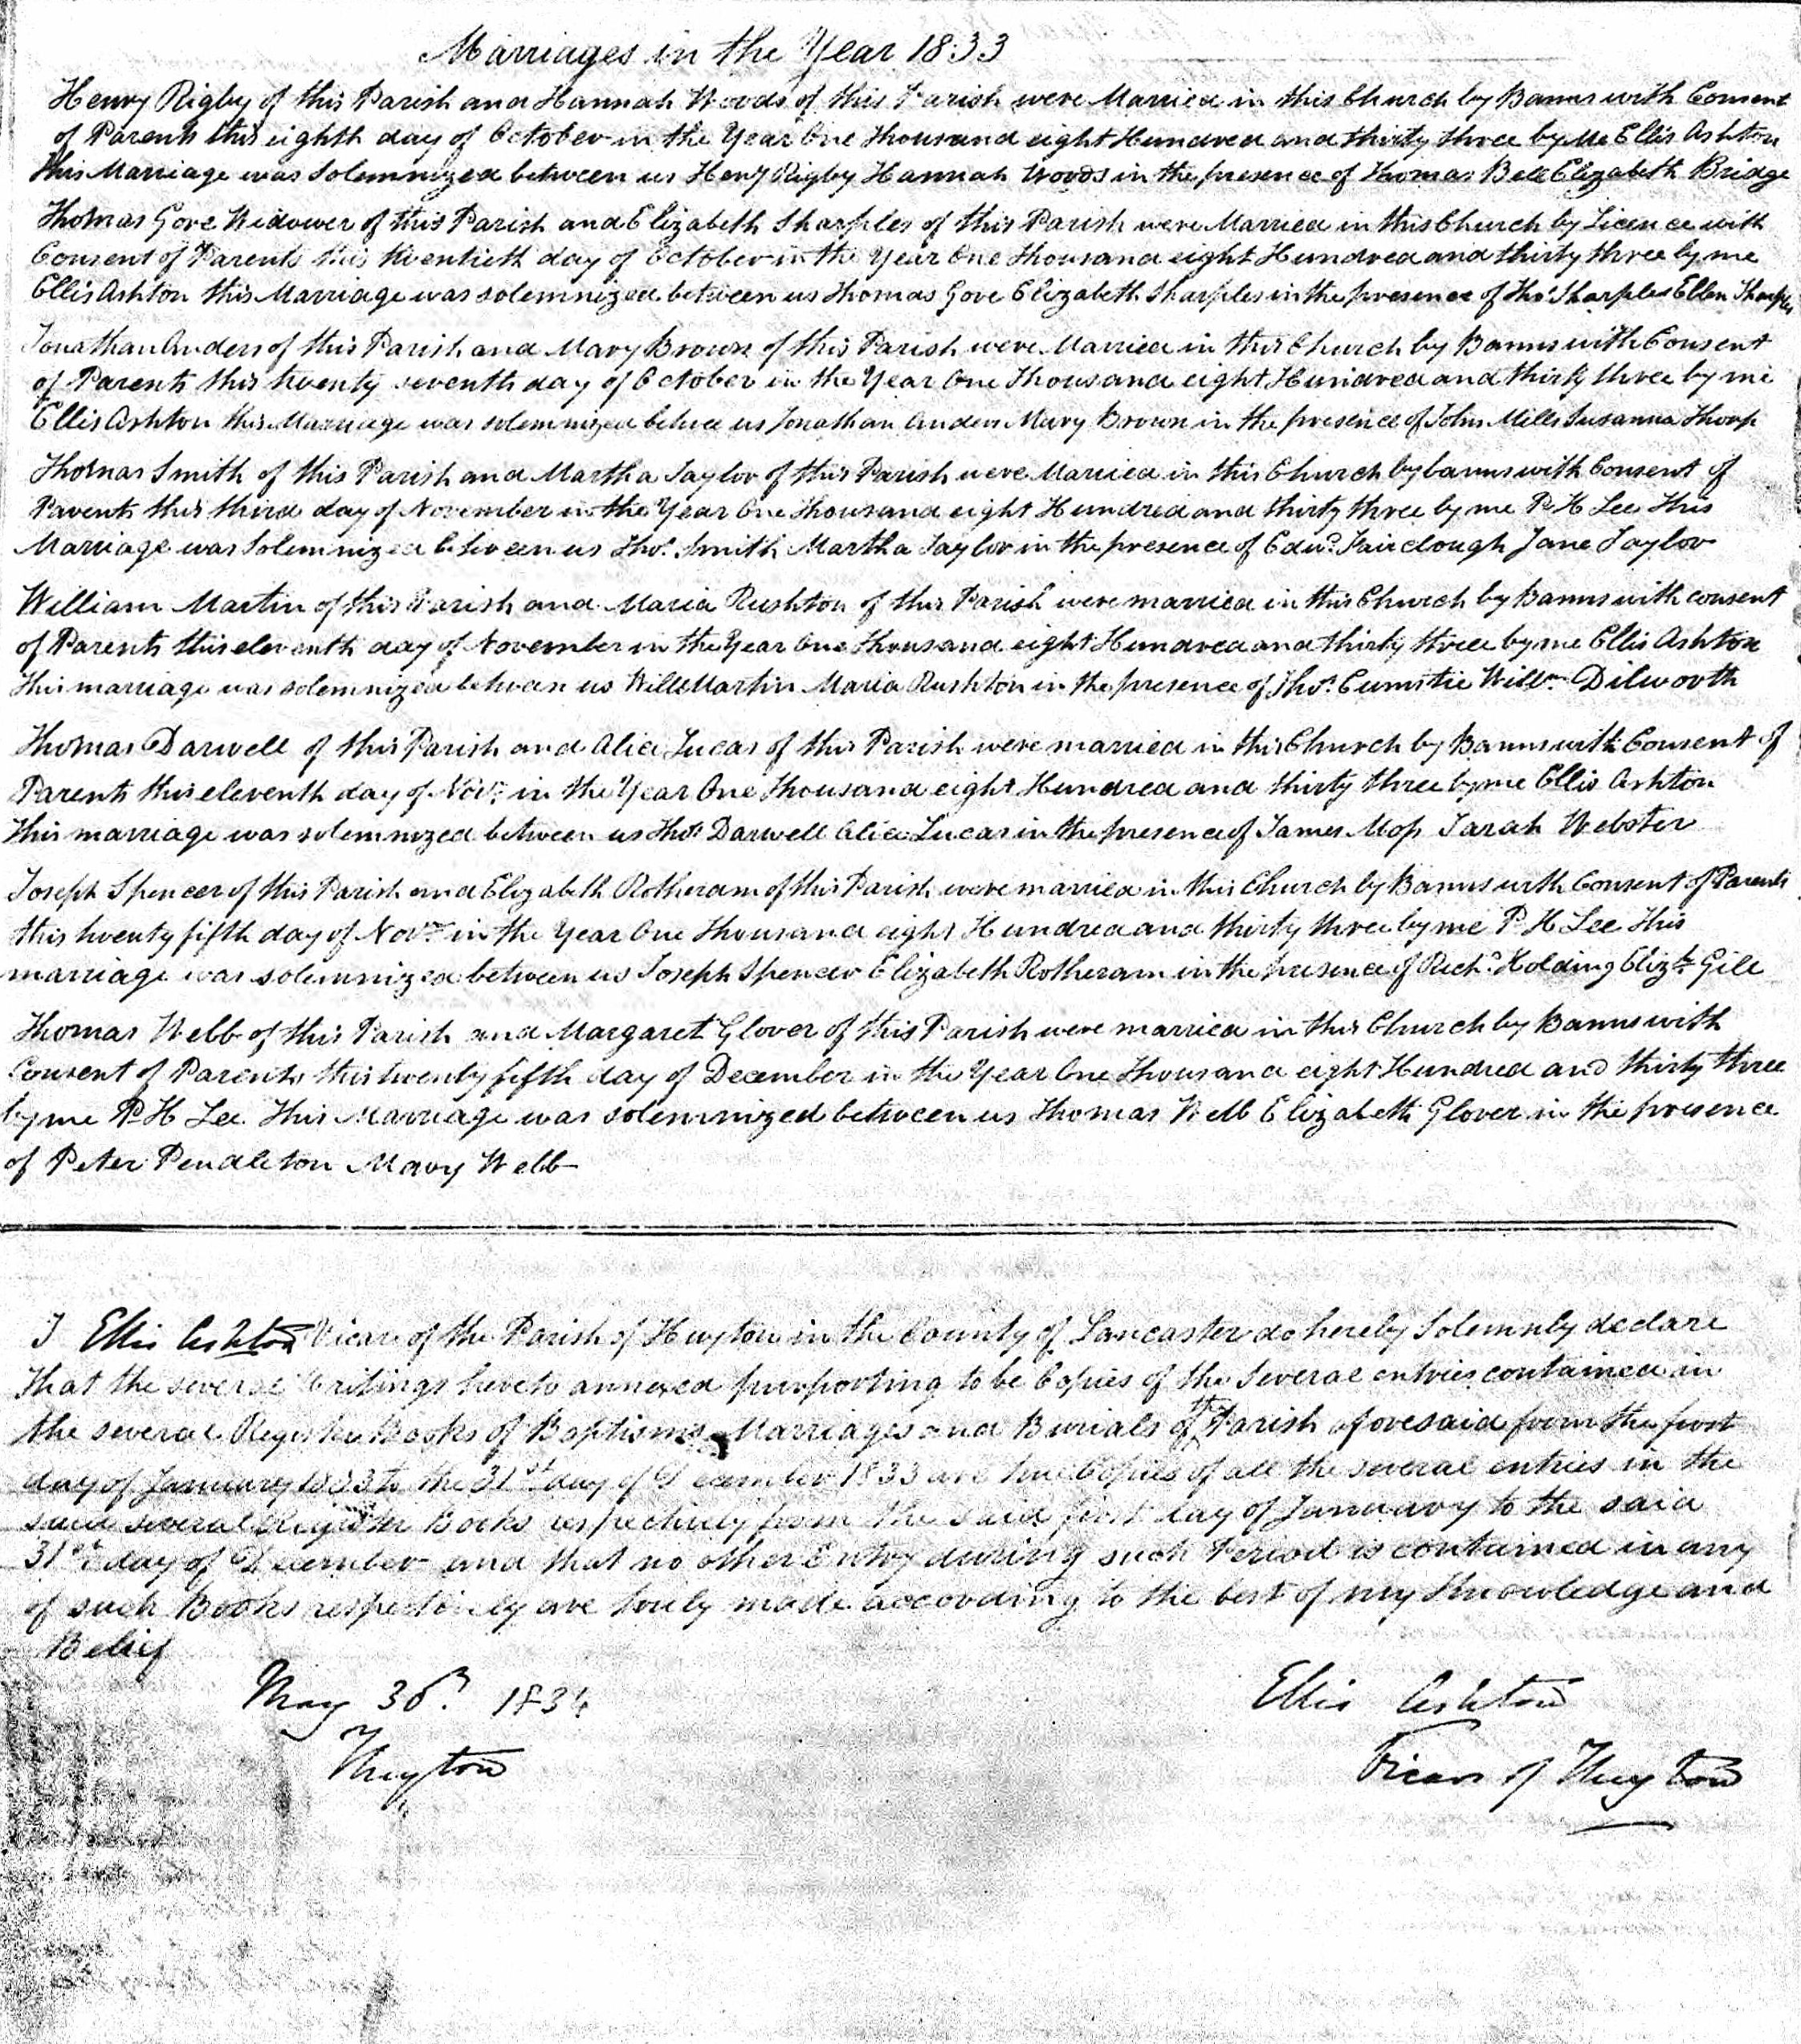 Marriages in the Year 1833
Henry Rigby of this Parish and Hannah Woods of this Parish were Married in this Church by Banns with Consent
of Parents this eighth day of October in the Year One Thousand eight Hundred and thirty three by Me Ellis Ashton
This Marriage was Solemnized between us Heny Rigby Hannah Woods in the presence of Thomas Bell Elizabeth Bridge
Thomas Gore Widower of this Parish and Elizabeth Sharples of this Parish were Married in this Church by Licence with
Consent of Parents this twentieth day of October in the Year One Thousand eight Hundred and thirty three by me
Ellis Ashton this Marriage was solemnized between us Thomas Gore Elizabeth Sharples in the presence of Thos Sharples Ellen Sharples
Jonathan Anders of this Parish and Mary Brown of this Parish were Married in this Church by Banns with Consent
of Parents this twenty seventh day of October in the Year One Thousand eight Hundred and thirty three by me
Ellis Ashton this Marriage was solemnized betwee us Jonathan Anders Mary Brown in the presence of John Mills Susanna Thorp
Thomas Smith of this Parish and Martha Taylor of this Parish were Married in this Church by banns with Consent of
Parents this third day of November in the Year One Thousand eight Hundred and thirty three by me P H Lee This
Marriage was Solemnized between us Thos. Smith Martha Taylor in the presence of Edwd. Fairclough Jane Taylor
William Martin of this Parish and Maria Rushton of this Parish were married in this Church by Banns with consent
of Parents this eleventh day of November in the Year One thousand eight Hundred and thirty three by me Ellis Ashton
This marriage was solemnized between us Willm Martin Maria Rushton in the presence of Thos. Willm Dilworth
Thomas Darwell of this Parish and Alice Lucas of this Parish were married in this Church by Banns with Consent of
Parents this eleventh day of Novr. in the Year One Thousand eight Hundred and thirty three by me Ellis Ashton
This marriage was solemnized between us Thos Darwell Alice Lucas in the presence of James Moss Sarah Webster
Joseph Spencer of this Parish and Elizabeth Rotheram of this Parish were married in this Church by Banns with Consent of Parents
this twenty fifth day of Novr. in the Year One Thousand eight Hundred and thirty three by me P H Lee This
marriage was solemnized between us Joseph Spencer Elizabeth Rotheram in the presence of Richd. Holding Elizth Gill
Thomas Webb of this Parish and Margaret Glover of this Parish were married in this Church by Banns with
Consent of Parents this twenty fifth day of December in the Year One Thousand eight Hundred and thirty three
by me P H Lee This Marriage was solemnized between us Thomas Webb Elizabeth Glover in the presence
of Peter Pendleton Mary Webb
I Ellis Ashton Vicar of the Parish of Huyton in the County of Lancaster do hereby Solemnly declare
That the several Writings hereto annexed purporting to be Copies of the Several entries contained in
the several Register Books of Baptisms Marriages and Burials of the Parish aforesaid from the first
day of January 1833 to the 31st day of December 1833 are true Copies of all the several entries in the
said several Register Books respectively from the said first day of January to the said
31st day of December and that no other Entry during such Period is contained in any
of such Books respectively are truly made according to the best of my Knowledge and
Belief
May 30. 1834
Huyton
Ellis Ashton
Vicar of Huyton